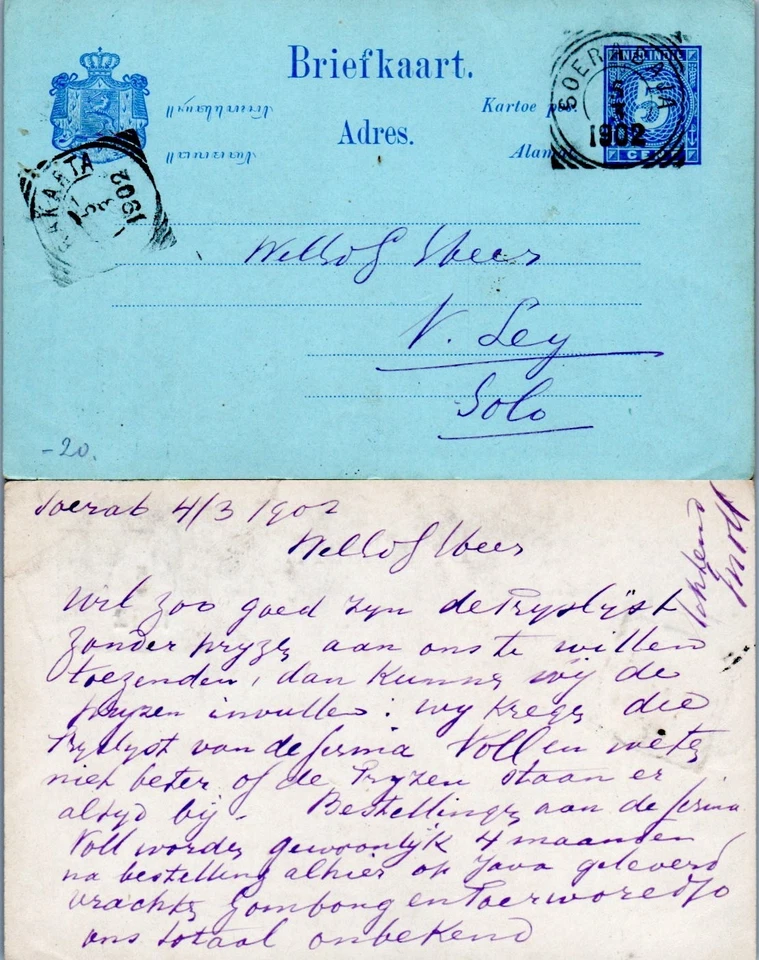 Briefkaart.
Kartoe
Adres.
Alamat
SOERABAJA
5
3
1902
NED. INDIE
5
CENT
1902
WelEdG Heer
V. Ley
Solo
-20.
Soerab 4/3 1902
WelEdG Heer
Wil zoo goed zyn de Pryslyst
zonder pryzen aan ons te willen
toezenden, dan kunnen wij de
pryzen invullen: wy kregen die
Pryslyst van de firma Voll en weten
niet beter of de Pryzen staan er
altyd bij. Bestellingen aan de firma
Voll worden gewoonlijk 4 maanden
na bestelling alhier op Java geleverd
vrachten Gombong en Poerworedjo
ons totaal onbekend
Achtend